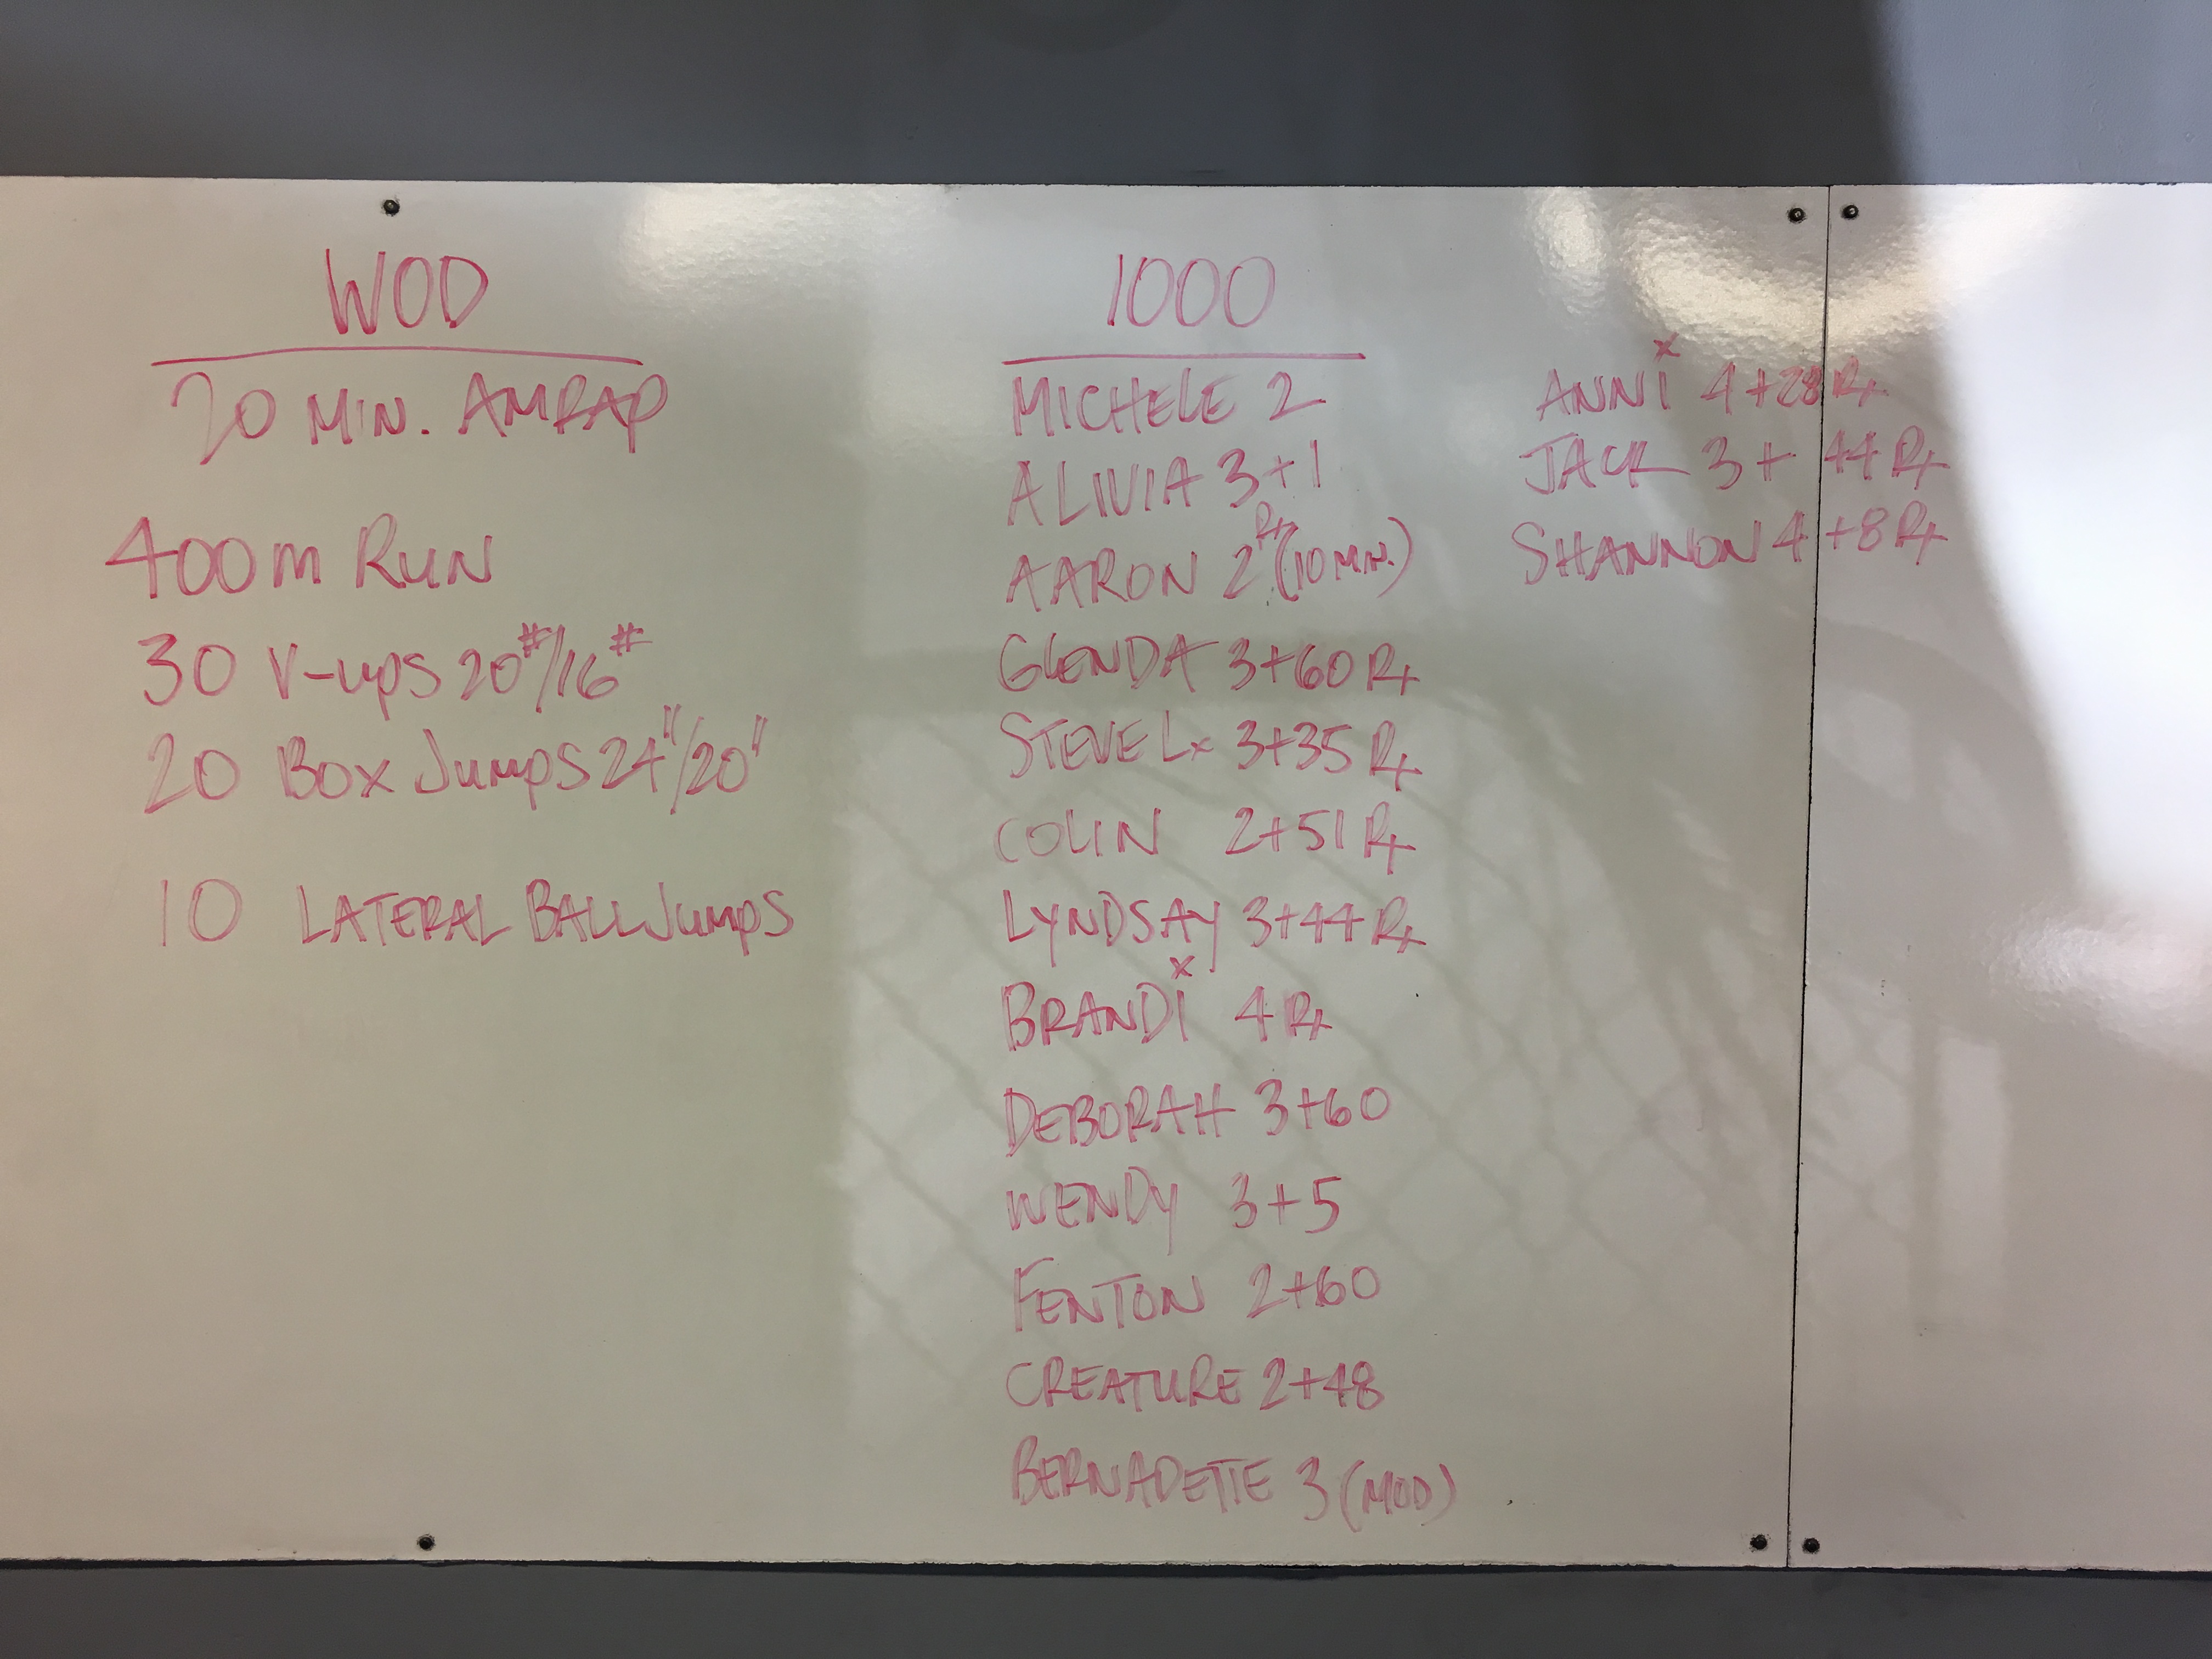 WOD
20 MIN. AMRAP
400m RUN
30 V-ups 20#/16#
20 Box Jumps 24"/20"
10 LATERAL BALL JUMPS
1000
MICHELE 2
ALIVIA 3+1
AARON 2 Rx (10 MIN.)
GLENDA 3+60 Rx
STEVE Lx 3+35 Rx
COLIN 2+51 Rx
LYNDSAY 3+44 Rx
BRANDi 4 Rx
DEBORAH 3+60
WENDY 3+5
FENTON 2+60
CREATURE 2+48
BERNADETTE 3 (MOD)
ANNi 4+28 Rx
JACK 3+44 Rx
SHANNON 4+8 Rx